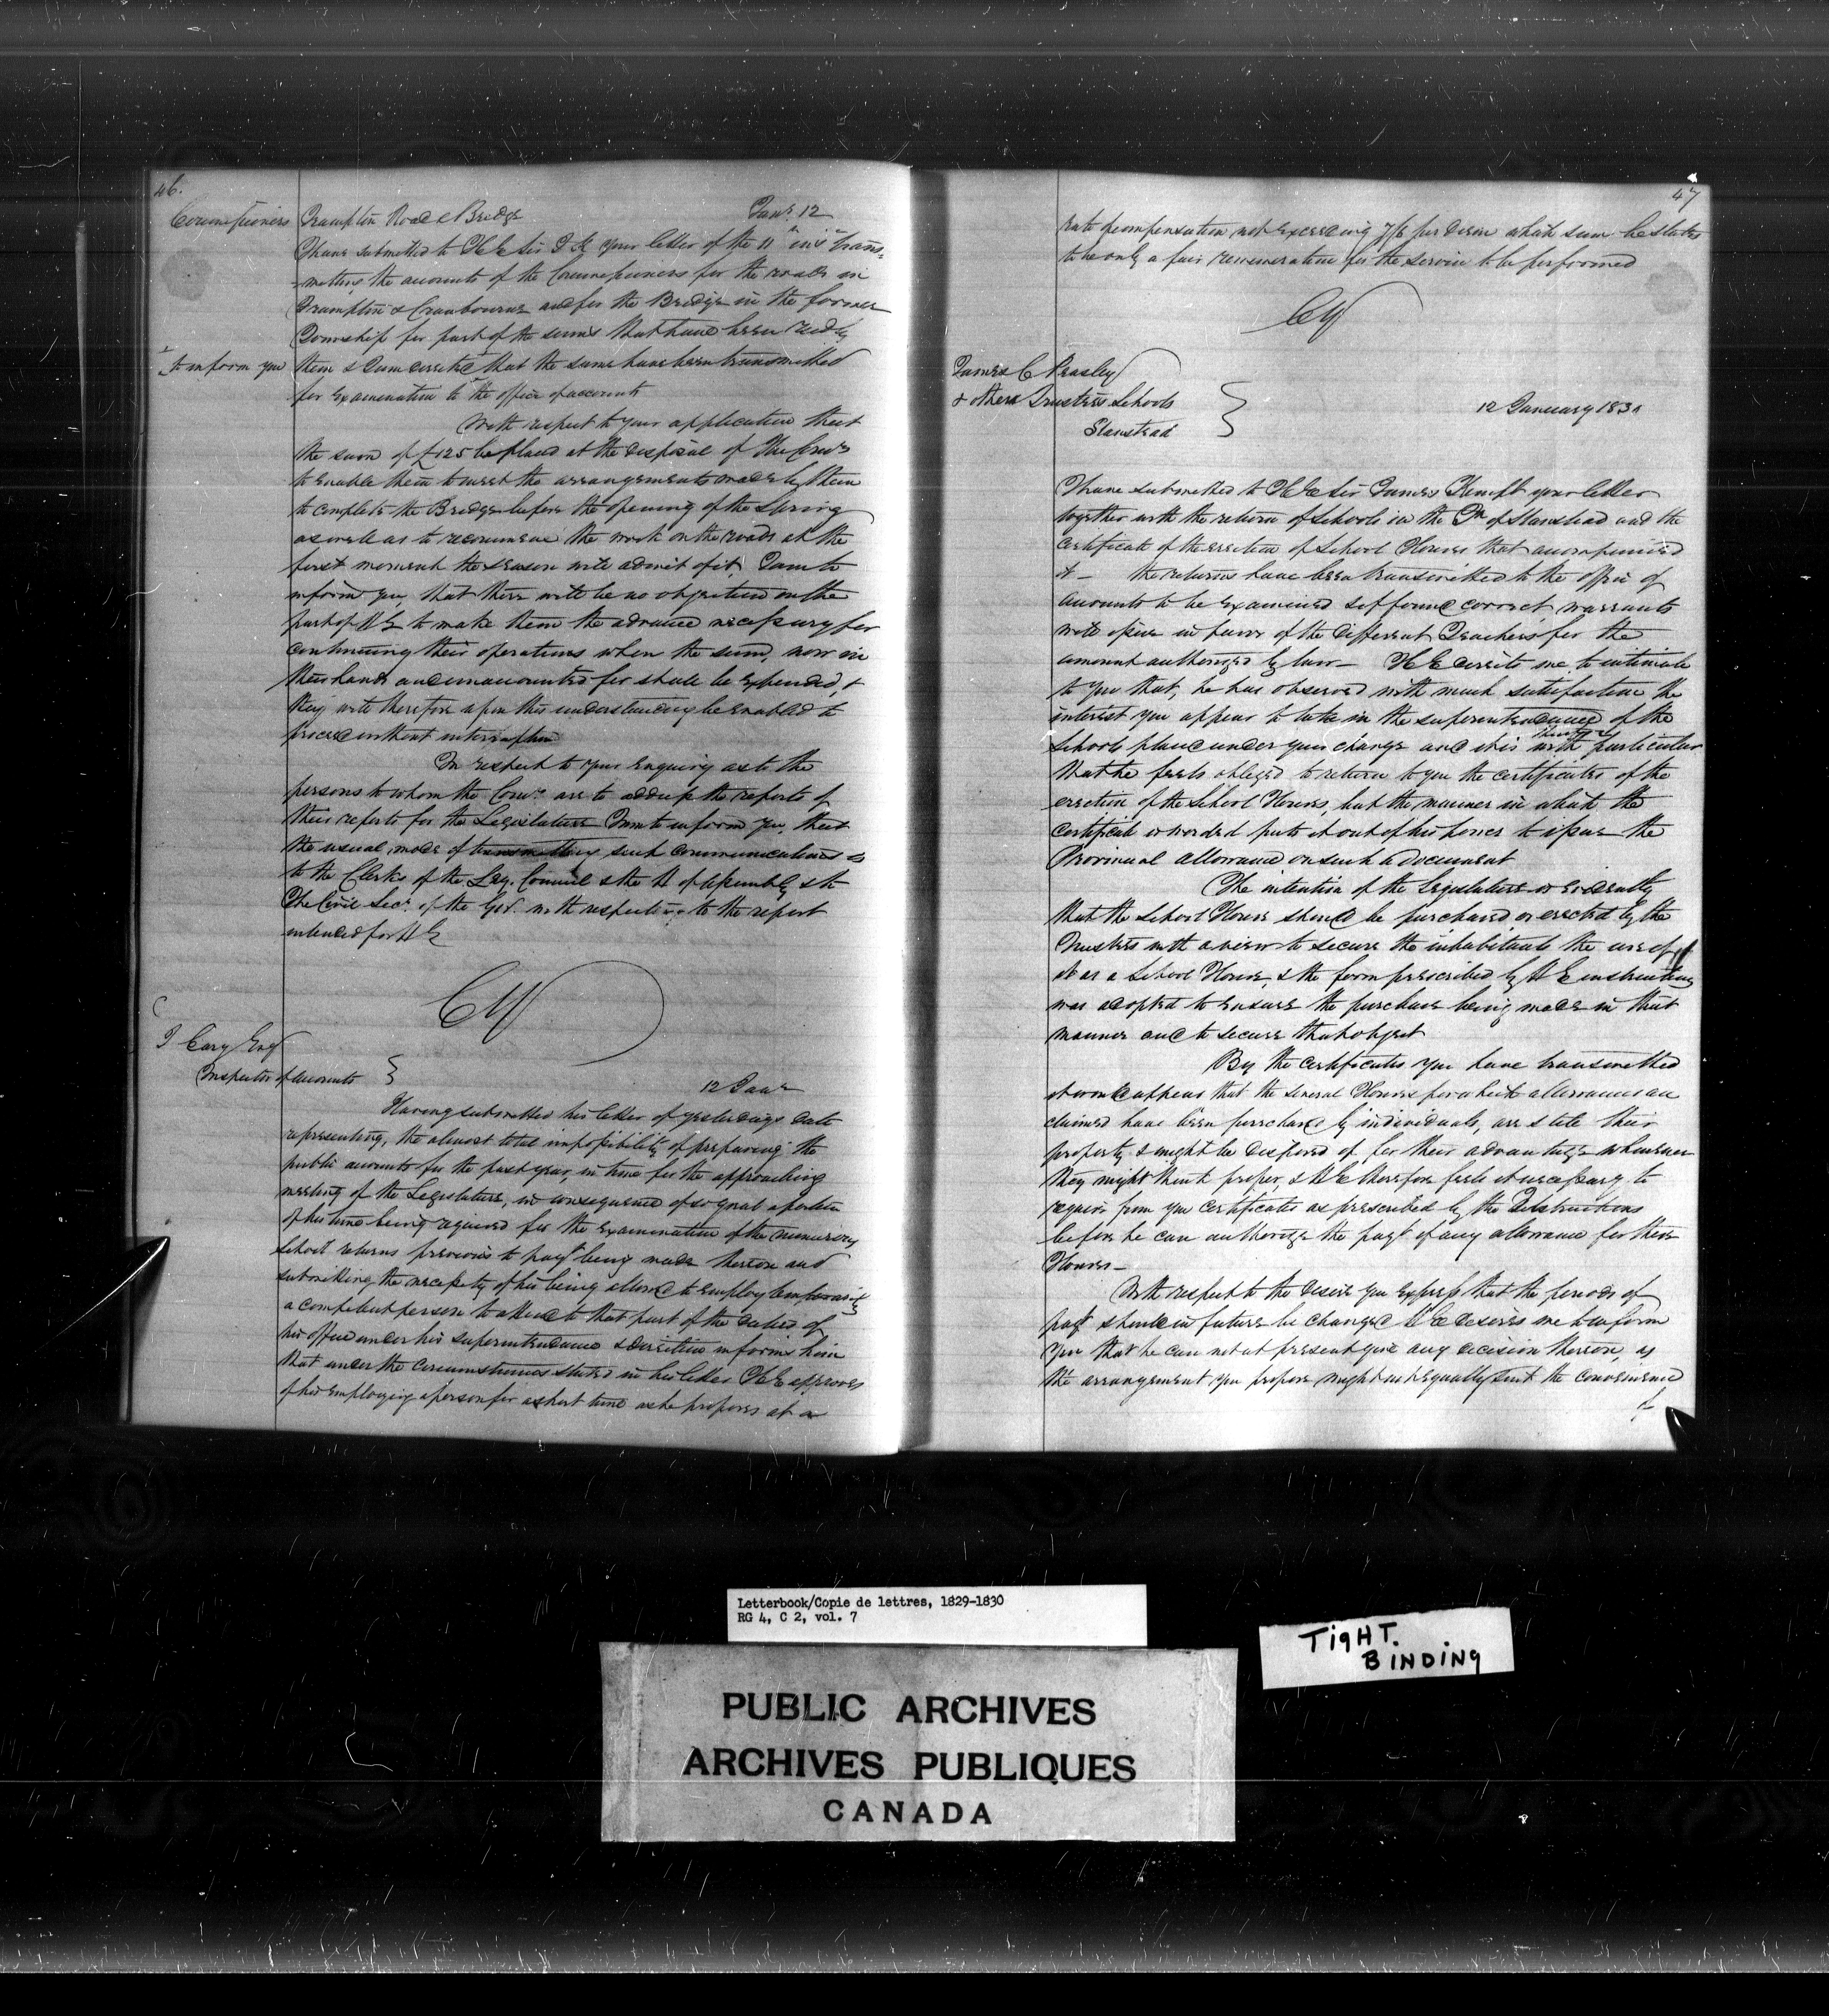 46.
Commissioners Frampton Road & Bridge Jany. 12
I have submitted to H E Sir J K your letter of the 11th inst trans-
-mitting the accounts of the Commissioners for the roads in
Frampton & Cranbourne and for the Bridge in the former
Township for part of the sums that have been recd by
to inform you them & I am directed that the same have been transmitted
for examination to the office of accounts
With respect to your application that
the sum of £125 be placed at the disposal of the Comrs
to enable them to meet the arrangements made by them
to complete the Bridge before the opening of the Spring
as well as to recommence the work on the roads at the
first moment the season will admit of it, I am to
inform you, that there will be no objection on the
part of H E to make them the advance necessary for
continuing their operations when the sum, now in
their hands and unaccounted for shall be expended, &
they will therefore upon this understanding be enabled to
proceed without interruption
In respect to your enquiry as to the
persons to whom the Comrs are to address the reports of
their reports for the Legislature I am to inform you that
the usual mode of transmitting such communications is
to the Clerks of the Leg. Council & the H of Assembly & to
The Civil Secy. of the Govr. with respect to the report
intended for H E
CY
J Cary Esqr
Inspector of accounts
12 Jany
Having submitted his letter of yesterdays date
representing, the almost total impossibility of preparing the
public accounts for the past year, in time for the approaching
meeting of the Legislature, in consequence of so great a portion
of his time being required for the examination of the numerous
School returns previous to payt being made thereon and
submitting the necessity of his being allowed to employ temporarily
a competent person to attend to that part of the duties of
his office under his superintendance & direction informs him
that under the circumstances stated in his letter H E approves
of his employing a person for a short time as he proposes at a
47
rate of compensation not exceeding 7/6 per diem which sum he states
to be only a fair remuneration for the service to be performed
CY
James C Peasley
& others Trustees Schools
Stanstead
12 January 1830
I have submitted to H E Sir James Kempt your letter
together with the return of Schools in the Tn of Stanstead and the
certificate of the erection of School Houses that accompanied
it - the returns have been transmitted to the office of
accounts to be examined & if found correct warrants
will issue in favor of the different Teachers for the
amount authorized by law - H E directs me to intimate
to you that, he has observed with much satisfaction the
interest you appear to take in the superintendance of the
Schools placed under your charge and it is with particular
that he feels obliged to return to you the certificates of the
erection of the School Houses, but the manner in which the
certificate is worded puts it out of his power to issue the
Provincial allowance on such a document
The intention of the Legislature is evidently
that the School House should be purchased or erected by the
Trustees with a view to secure the inhabitants the use of
it as a School House, & the form prescribed by H E instructions
was adopted to ensure the purchase being made in that
manner and to secure that object
By the certificates you have transmitted
it would appear that the several Houses for which allowances are
claimed have been purchased by individuals, are still their
property & might be disposed of for their advantage whenever
they might think proper, & H E therefore feels it necessary to
require from you certificates as prescribed by the Instructions
before he can authorize the payt of any allowance for these
Houses -
With respect to the desire you express that the periods of
payt should in future be changed H E desires me to inform
you that he can not at present give any decision thereon, as
the arrangement you propose might not equally suit the convenience
of
Letterbook/Copie de lettres, 1829-1830
RG 4, C 2, vol. 7
TIGHT.
BINDING
PUBLIC ARCHIVES
ARCHIVES PUBLIQUES
CANADA